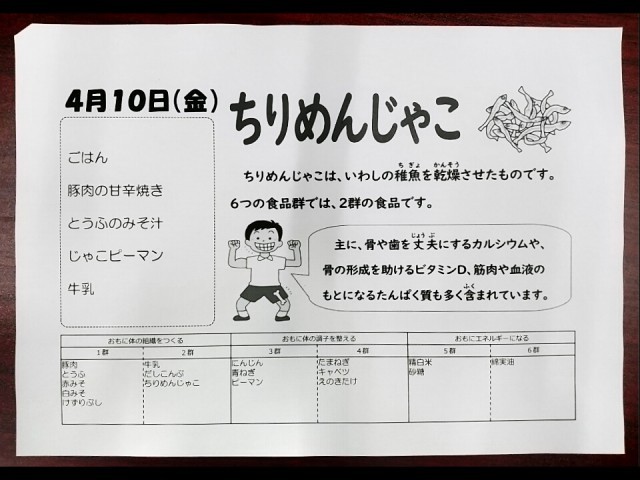 4月10日(金)
ちりめんじゃこ
ごはん
豚肉の甘辛焼き
とうふのみそ汁
じゃこピーマン
牛乳
ちりめんじゃこは、いわしの稚魚を乾燥させたものです。
ちぎょ かんそう
6つの食品群では、2群の食品です。
主に、骨や歯を丈夫にするカルシウムや、
じょうぶ
骨の形成を助けるビタミンD、筋肉や血液の
もとになるたんぱく質も多く含まれています。
ふく
おもに体の組織をつくる おもに体の調子を整える おもにエネルギーになる
1群 2群 3群 4群 5群 6群
豚肉 牛乳 にんじん たまねぎ 精白米 綿実油
とうふ だしこんぶ 青ねぎ キャベツ 砂糖
赤みそ ちりめんじゃこ ピーマン えのきたけ
白みそ
けずりぶし